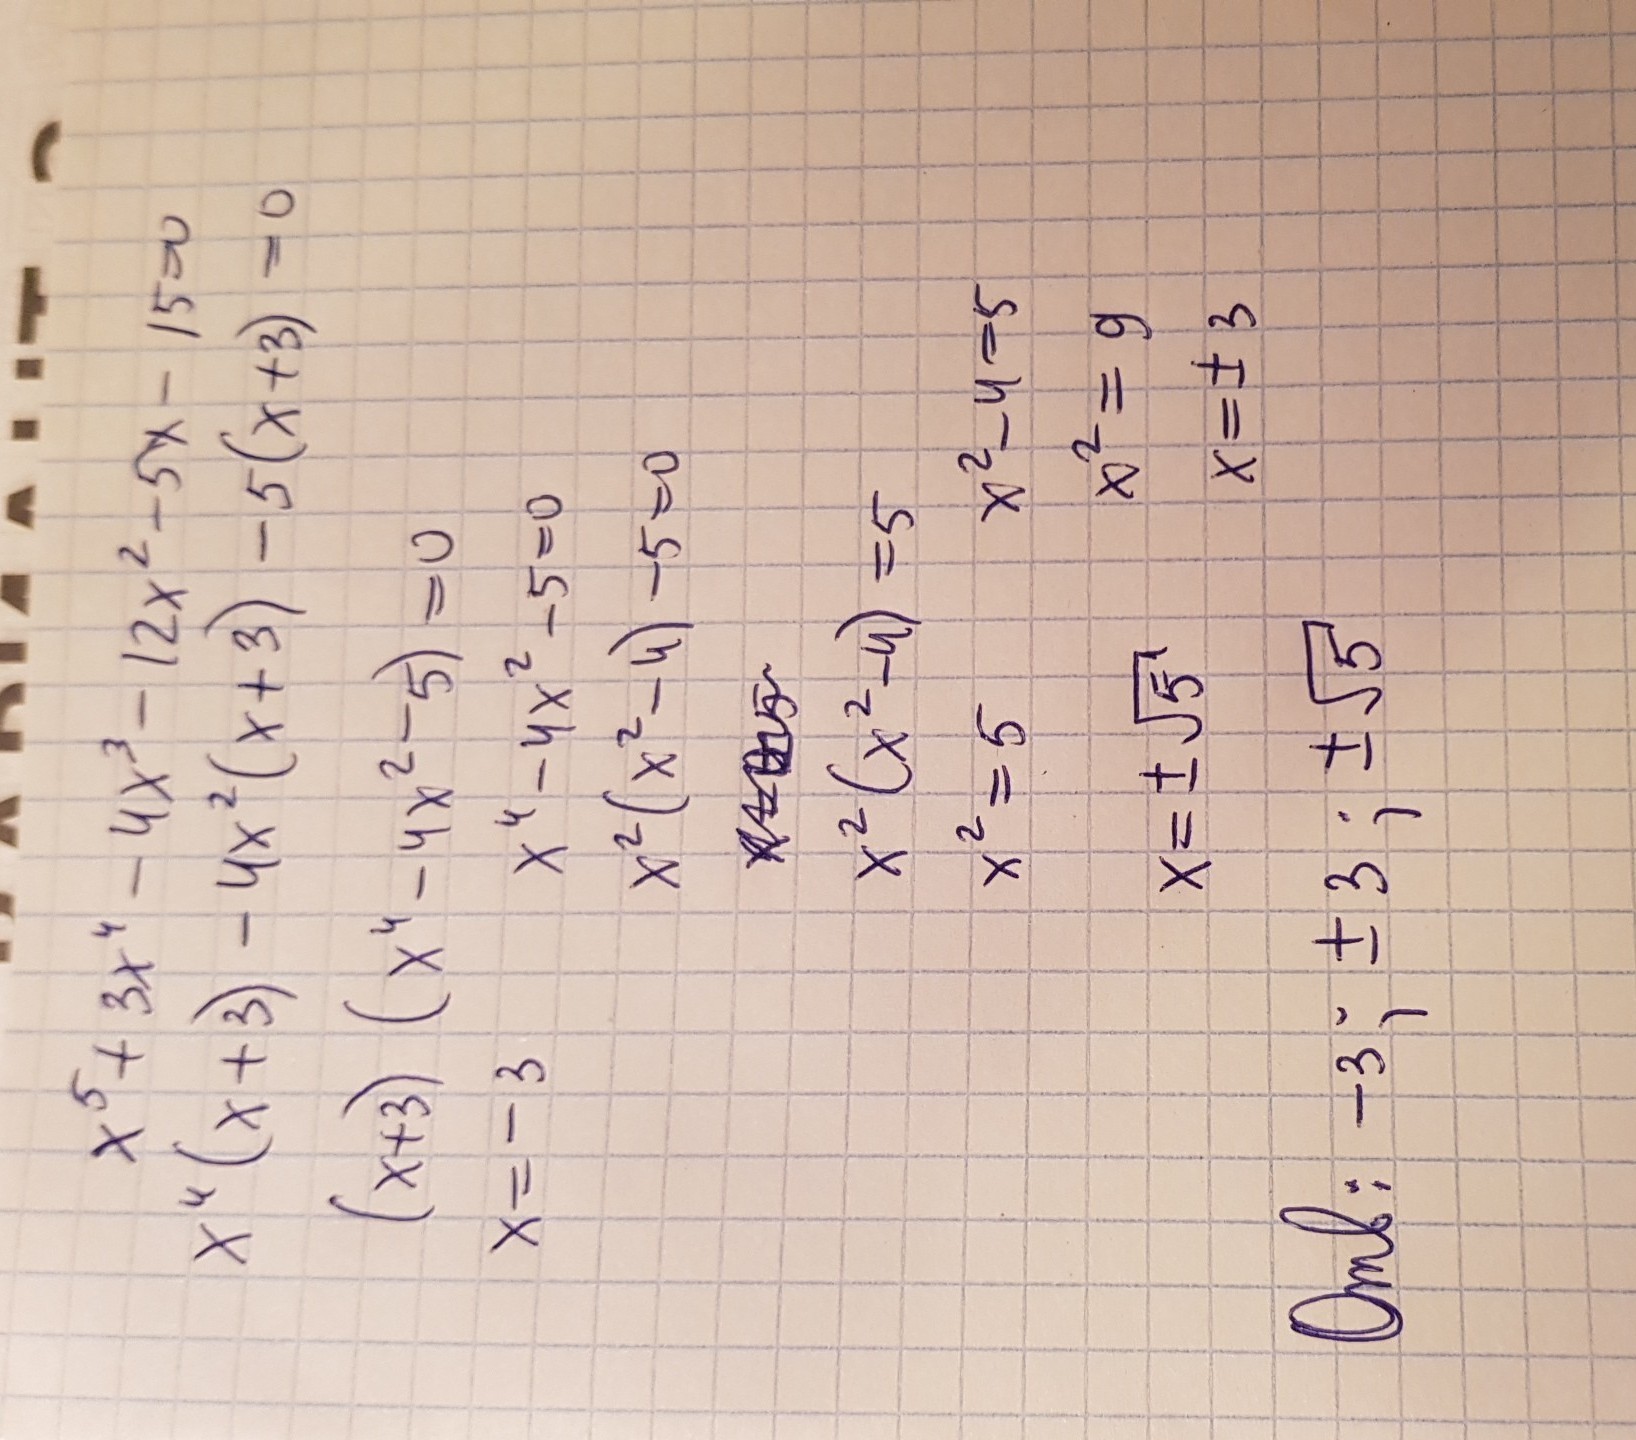 x⁵+3x⁴-4x³-12x²-5x-15=0
x⁴(x+3)-4x²(x+3)-5(x+3)=0
(x+3)(x⁴-4x²-5)=0
x=-3 x⁴-4x²-5=0
x²(x²-4)-5=0
x²(x²-4)=5
x²=5 x²-4=5
x²=9
x=±√5 x=±3
Отв: -3; ±3; ±√5